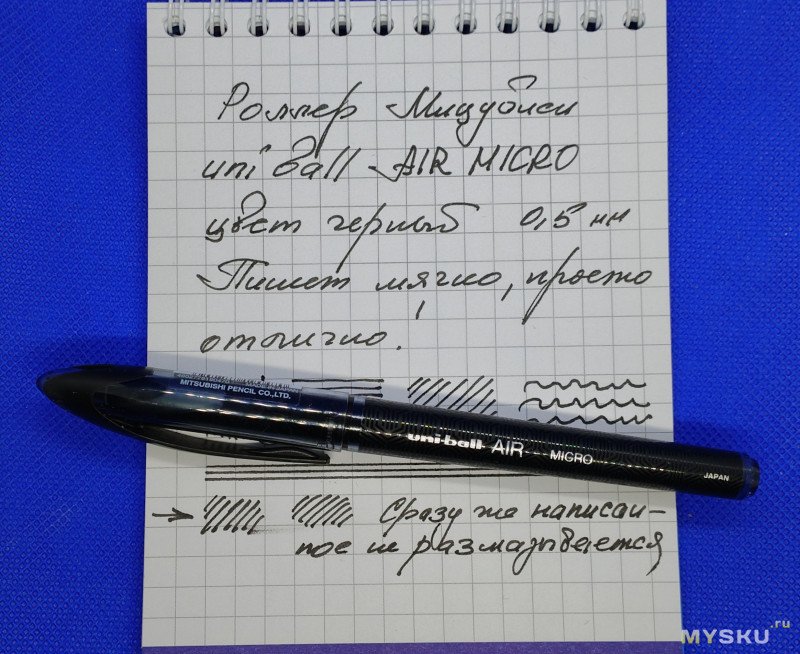 Роллер Мицубиси
uni ball AIR MICRO
цвет черный 0,5 мм
Пишет мягко, просто
отлично.
MITSUBISHI PENCIL CO.,LTD.
uni-ball AIR MICRO JAPAN
Сразу же написан-
ное не размазывается
MYSKU.ru